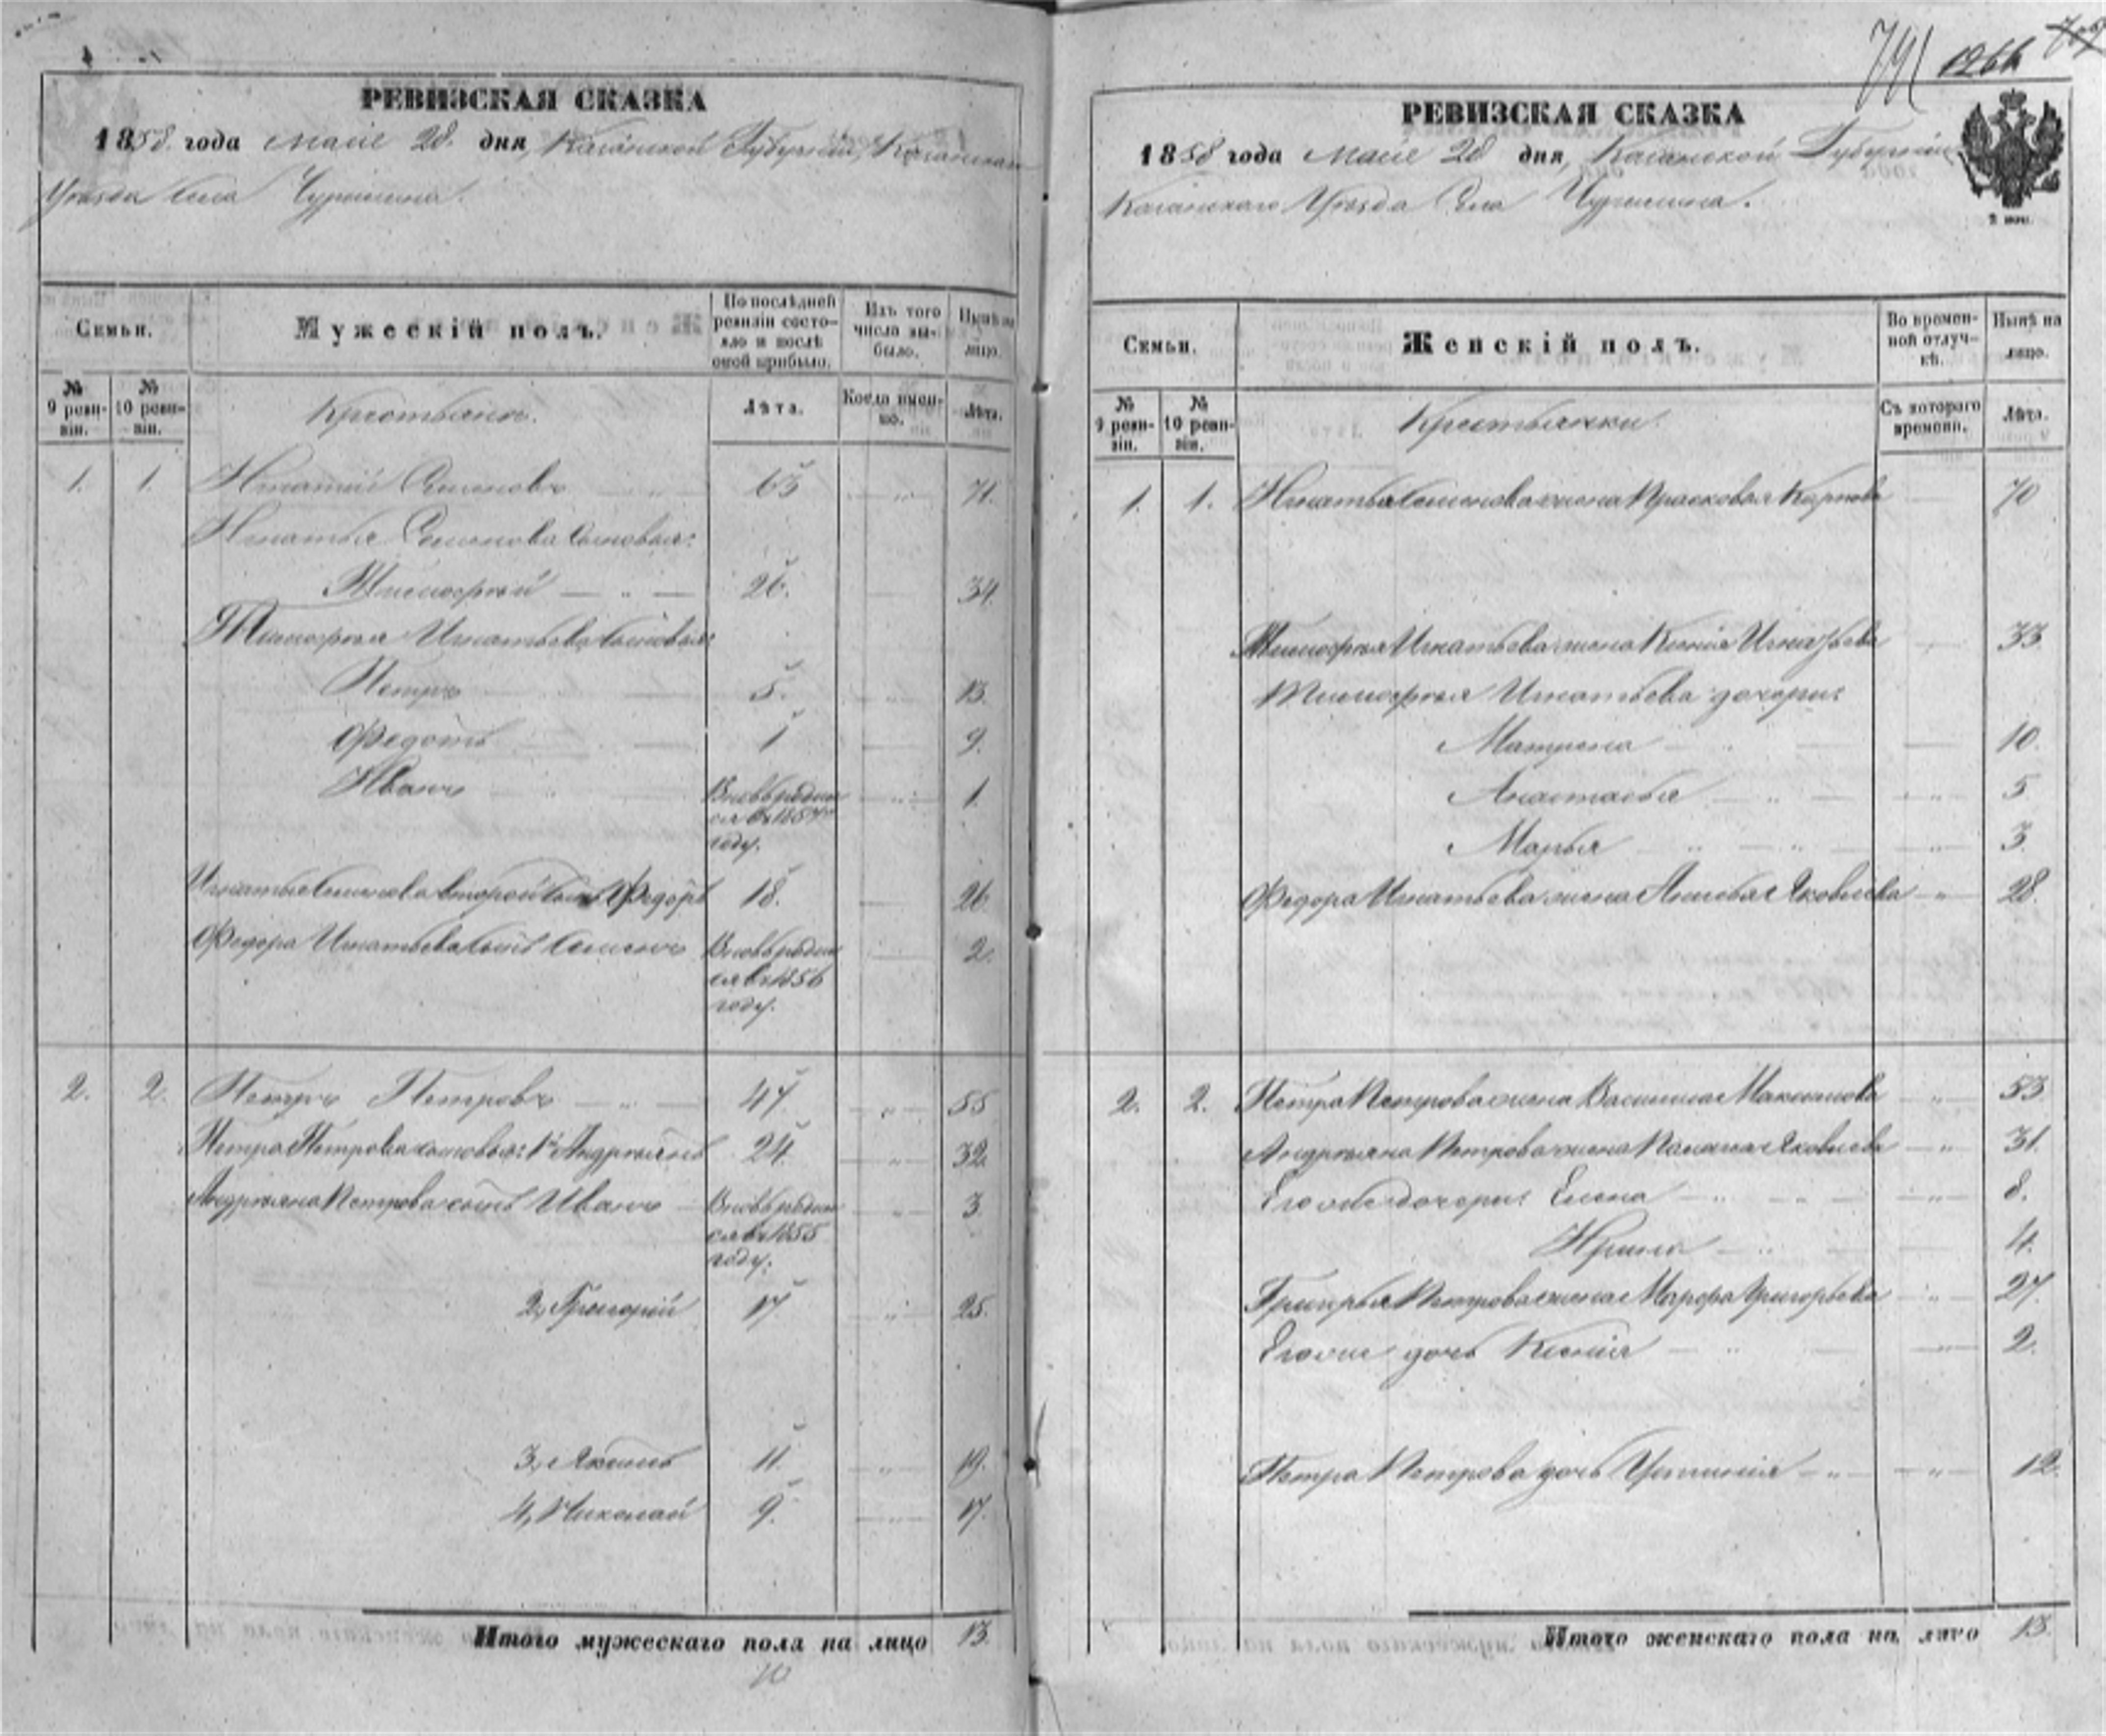 РЕВИЗСКАЯ СКАЗКА
1858 года Маiя 28 дня, Казанской Губернiи, Казанскаго
Уѣзда Села Чурилина.
Семьи.
Мужескiй полъ.
По послѣдней ревизiи состояло и послѣ оной прибыло.
Изъ того числа выбыло.
Нынѣ на лицо.
№ 9 ревизiи.
№ 10 ревизiи.
Крестьяне.
Лѣта.
Когда именно.
Лѣта.
1. 1. Игнатiй Семеновъ 63 71.
Игнатья Семенова сыновья:
Тимофей 26. 34.
Тимофея Игнатьева сыновья:
Петръ 5. 13.
Федотъ 1 9.
Иванъ Вновь родил- 1.
ся въ 1857
году.
Игнатья Семенова второй сынъ Федоръ 18. 26
Федора Игнатьева сынъ Семенъ Вновь родил- 2.
ся въ 1856
году.
2. 2. Петръ Петровъ 47 55
Петра Петрова сыновья: 1й Андреянъ 24. 32.
Андреяна Петрова сынъ Иванъ Вновь родил- 3
ся въ 1855
году.
2, Григорiй 17. 25.
3, Якимъ 11. 19.
4, Николай 9. 17.
Итого мужескаго пола на лицо 13.
791 1266
РЕВИЗСКАЯ СКАЗКА
1858 года Маiя 28 дня, Казанской Губернiи
Казанскаго Уѣзда Села Чурилина.
2 коп.
Семьи.
Женскiй полъ.
Во временной отлучкѣ.
Нынѣ на лицо.
№ 9 ревизiи.
№ 10 ревизiи.
Крестьянки.
Съ котораго времени.
Лѣта.
1. 1. Игнатья Семенова жена Прасковья Карпова 70
Тимофея Игнатьева жена Ксенiя Игнатьева 33.
Тимофея Игнатьева дочери:
Матрена 10.
Анастасья 5
Марья 3.
Федора Игнатьева жена Яковлева 28.
2. 2. Петра Петрова жена Василиса Максимова 53
Андреяна Петрова жена Пелагея Яковлева 31.
Его же дочери: Елена 8.
Ирина 4.
Григорья Петрова жена Марфа Григорьева 27.
Его же дочь Ксенiя 2.
Петра Петрова дочь Устинiя 12.
Итого женскаго пола на лицо 13.